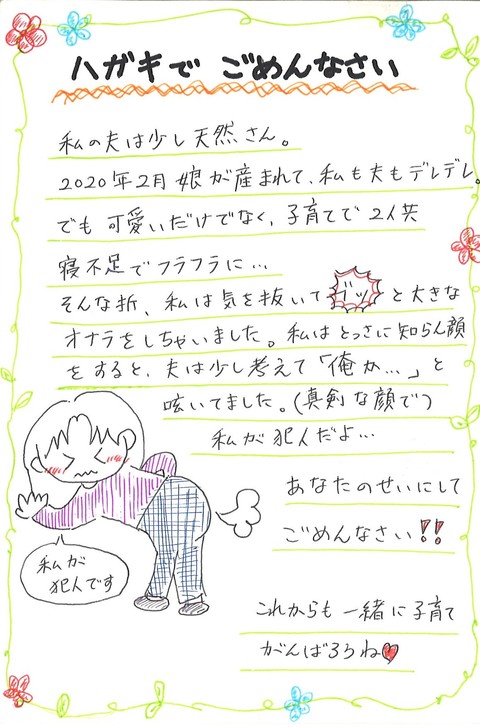 ハガキで ごめんなさい
私の夫は少し天然さん。
2020年2月 娘が産まれて、私も夫もデレデレ。
でも可愛いだけでなく、子育てで2人共
寝不足でフラフラに…
そんな折、私は気を抜いてブッと大きな
オナラをしちゃいました。私はとっさに知らん顔
をすると、夫は少し考えて「俺か…」と
呟いてました。(真剣な顔で)
私が犯人だよ…
あなたのせいにして
ごめんなさい!!
私が
犯人です
これからも一緒に子育て
がんばろうね